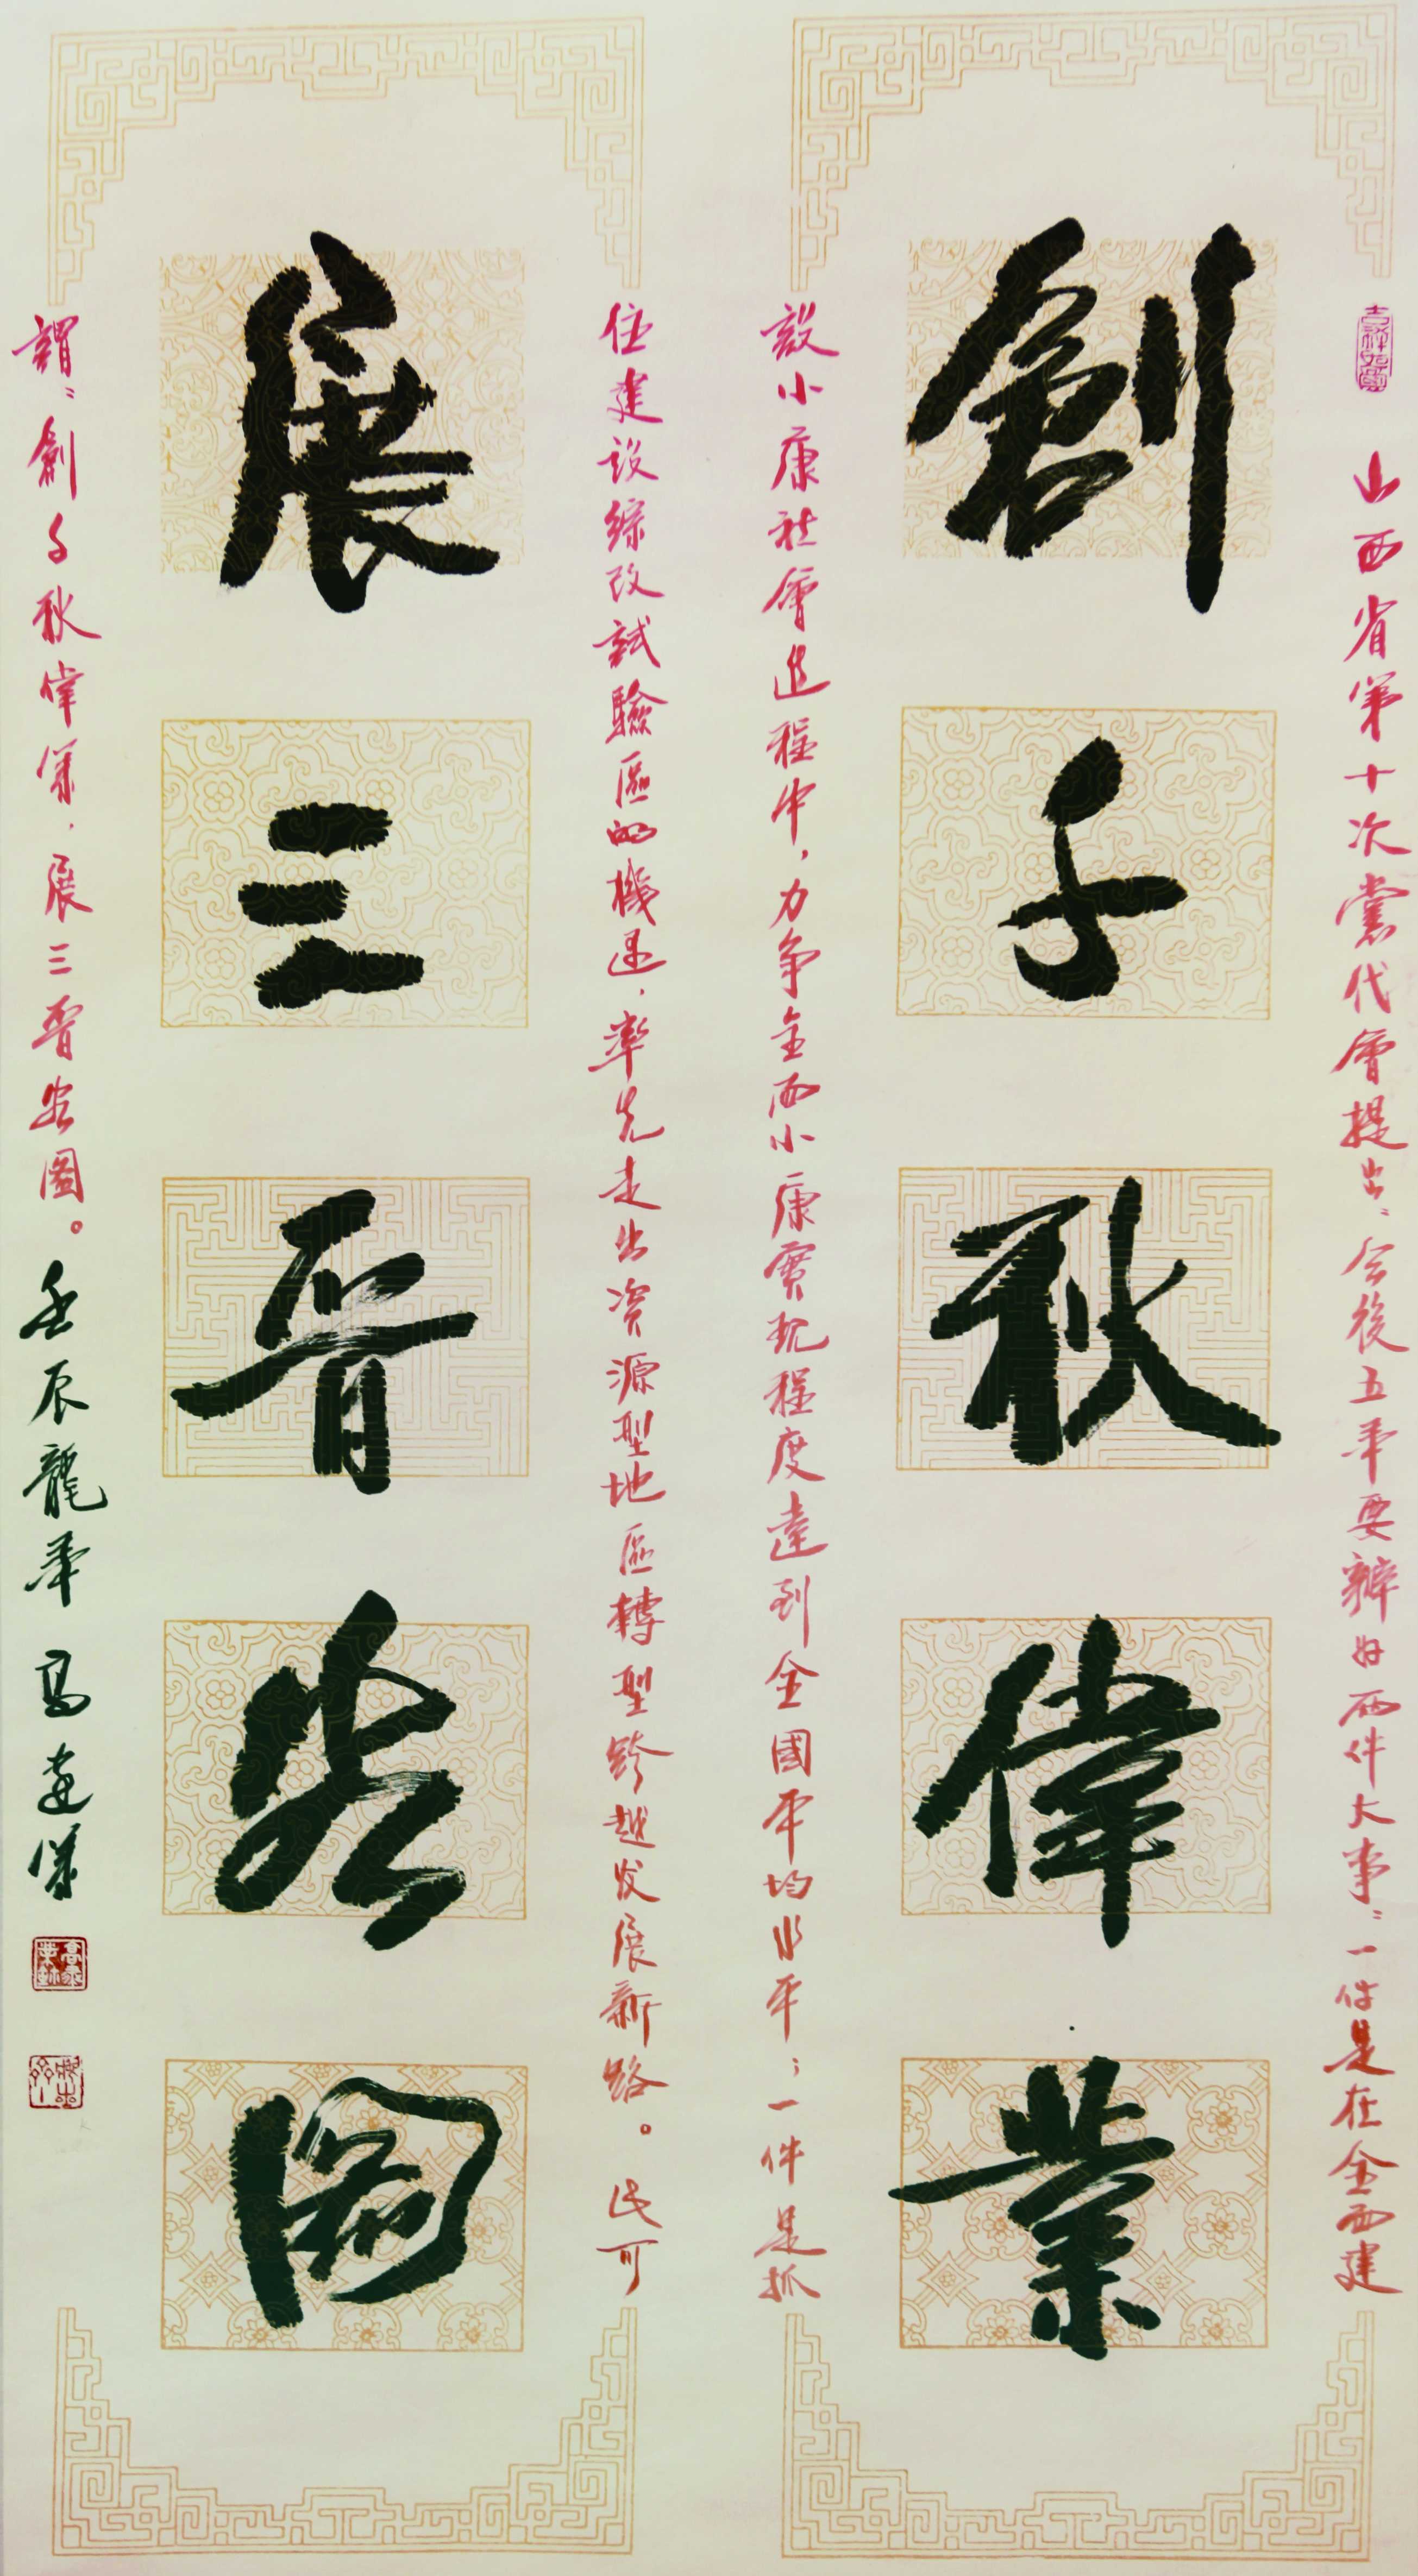 吉祥如意
山西省第十次黨代會提出：今後五年要辦好兩件大事：一件是在全面建
創千秋偉業
設小康社會進程中，力争全面小康實現程度達到全國平均水平；一件是抓
住建设綜改試驗區的機遇，率先走出資源型地區轉型跨越发展新路。此可
展三晉宏圖
謂：創千秋偉業，展三晉宏圖。壬辰龍年 馮建業